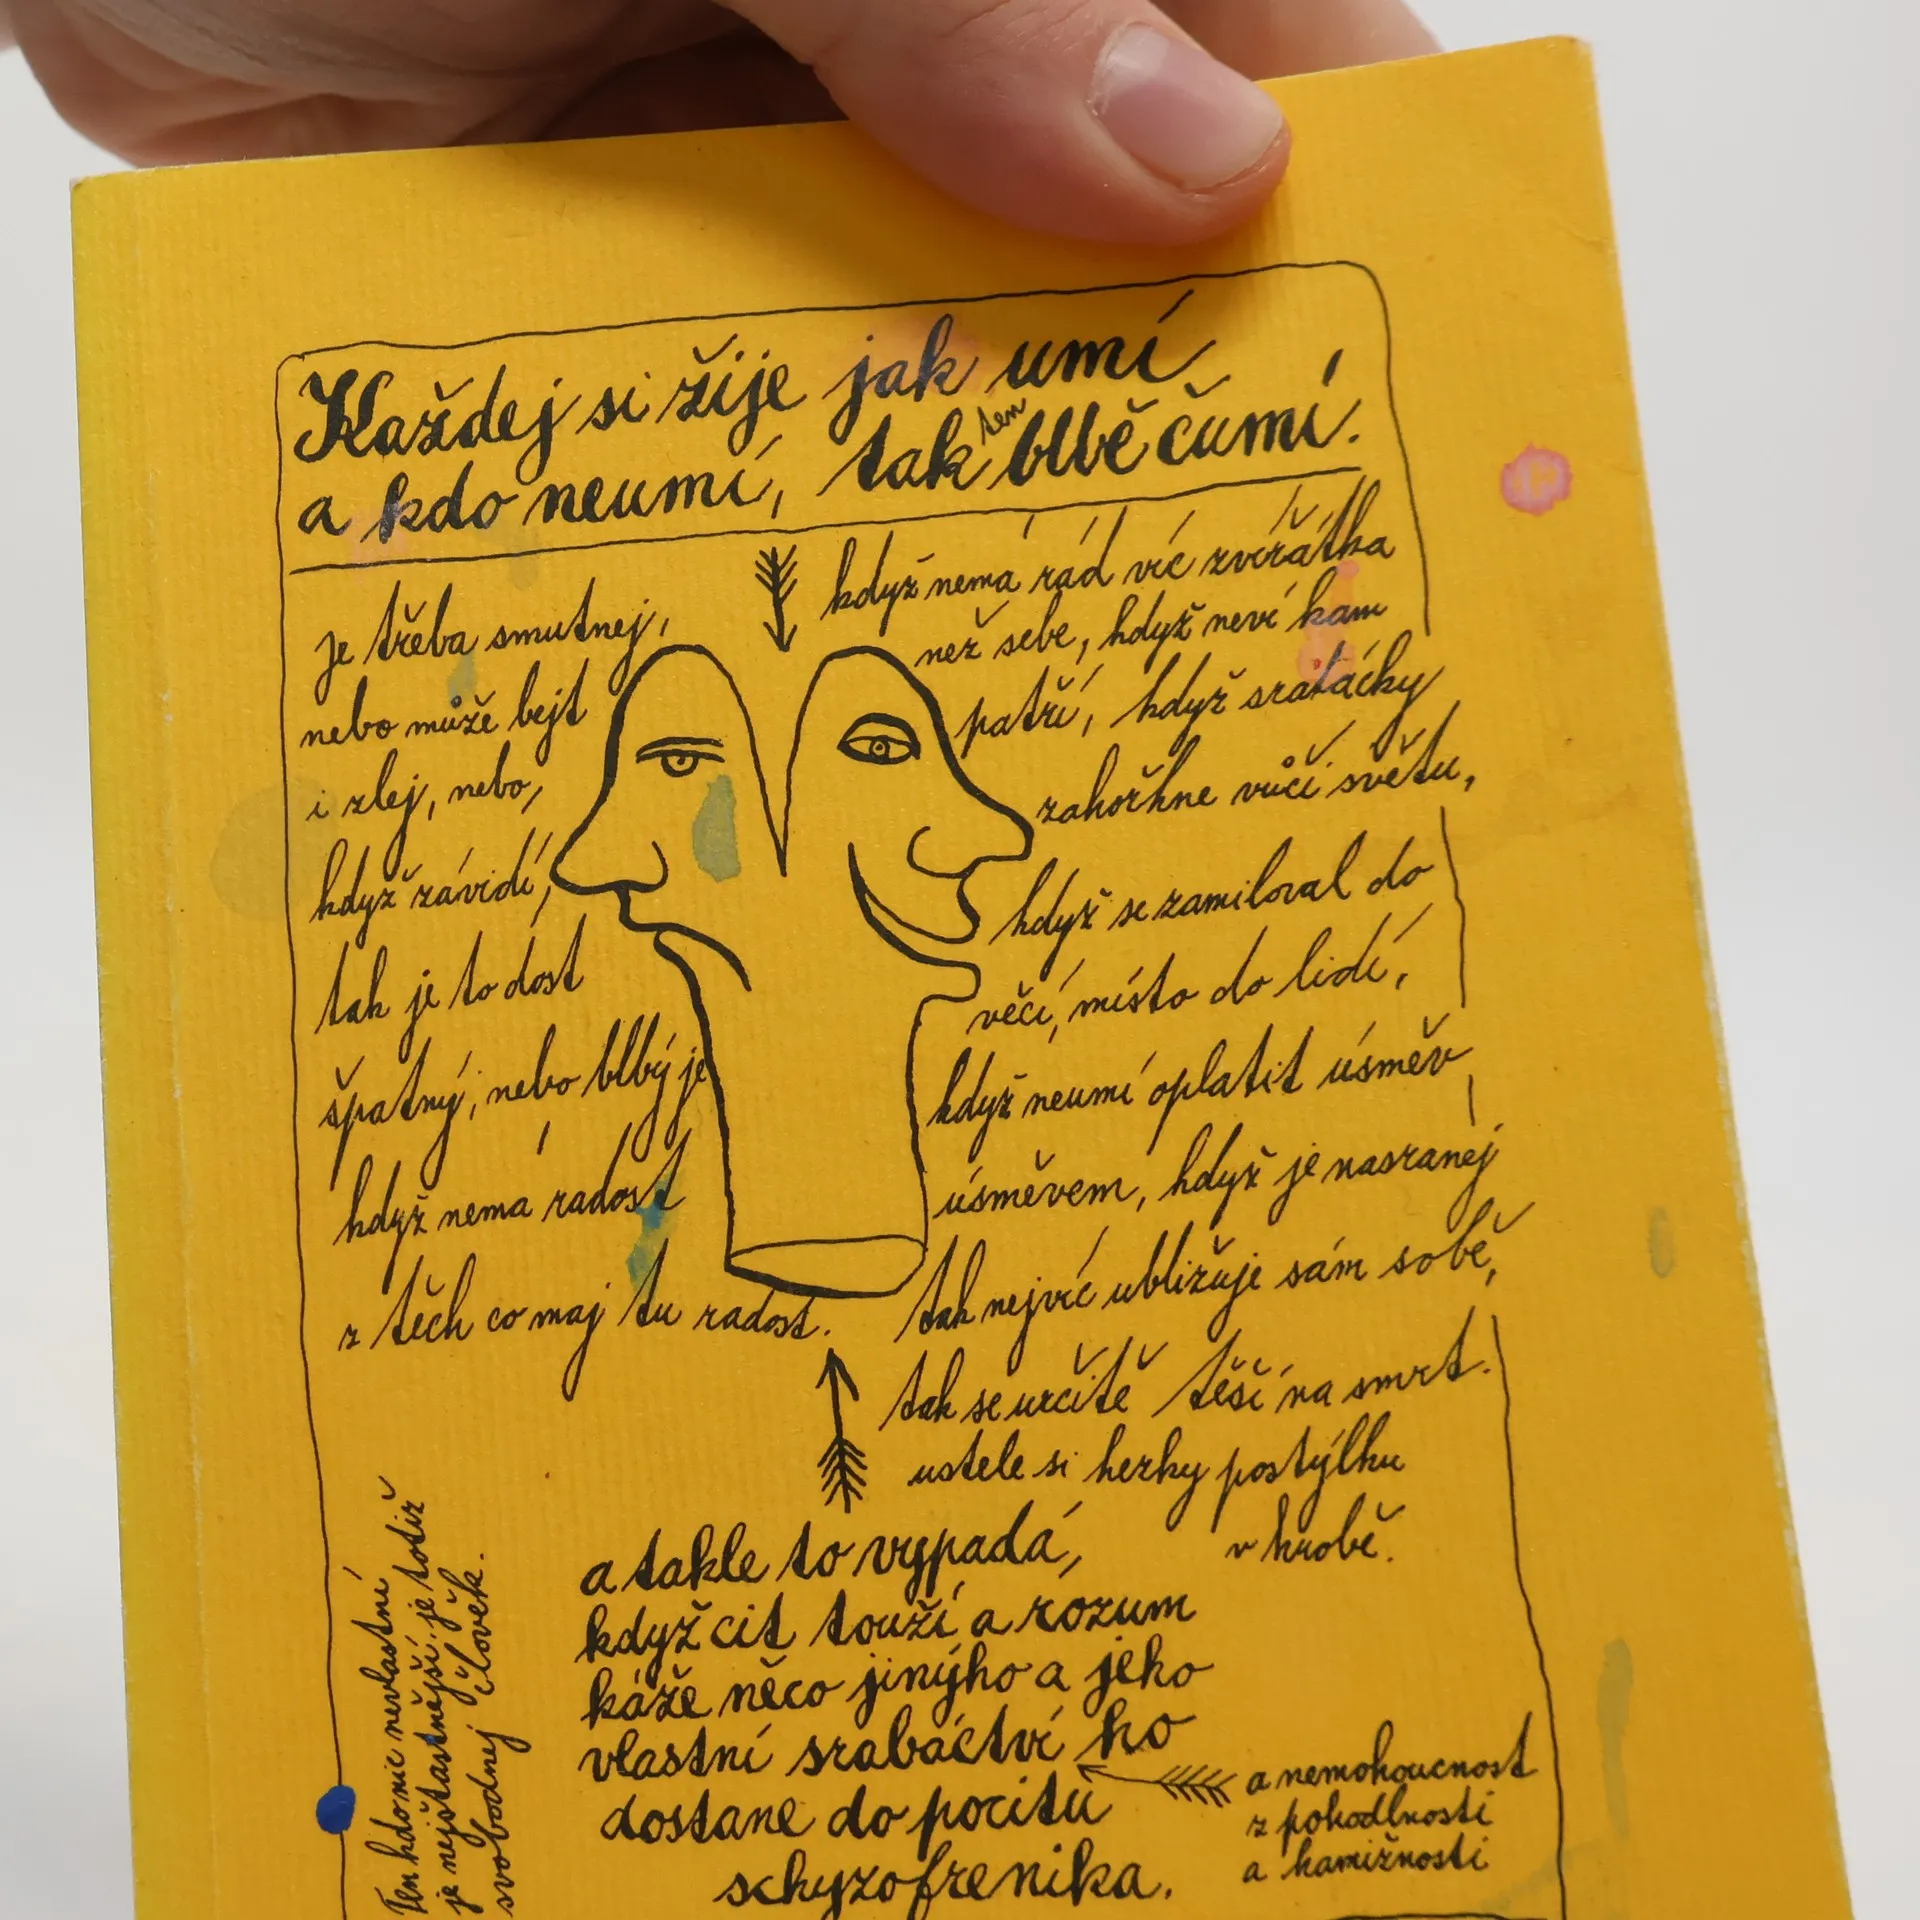 Každej si žije jak umí
a kdo neumí, tak ten blbě čumí.
je třeba smutnej,
nebo může bejt
i zlej, nebo,
když závidí,
tak je to dost
špatný, nebo blbý je
když nemá radost
z těch co maj tu radost.
když nemá rád víc zvířátka
než sebe, když neví kam
patří, když sraťácky
zahořkne vůči světu,
když se zamiloval do
věcí, místo do lidí,
když neumí oplatit úsměv
úsměvem, když je nasranej
tak nejvíc ubližuje sám sobě,
tak se určitě těší na smrt.
ustele si hezky postýlku
v hrobě.
a takle to vypadá,
když cit touží a rozum
káže něco jinýho a jeho
vlastní srabáctví ho
dostane do pocitu
schyzofrenika.
a nemohoucnost
z pohodlnosti
a hamižnosti
Ten kdo nic nevlastní
je nejšťastnější. je totiž
svobodnej člověk.